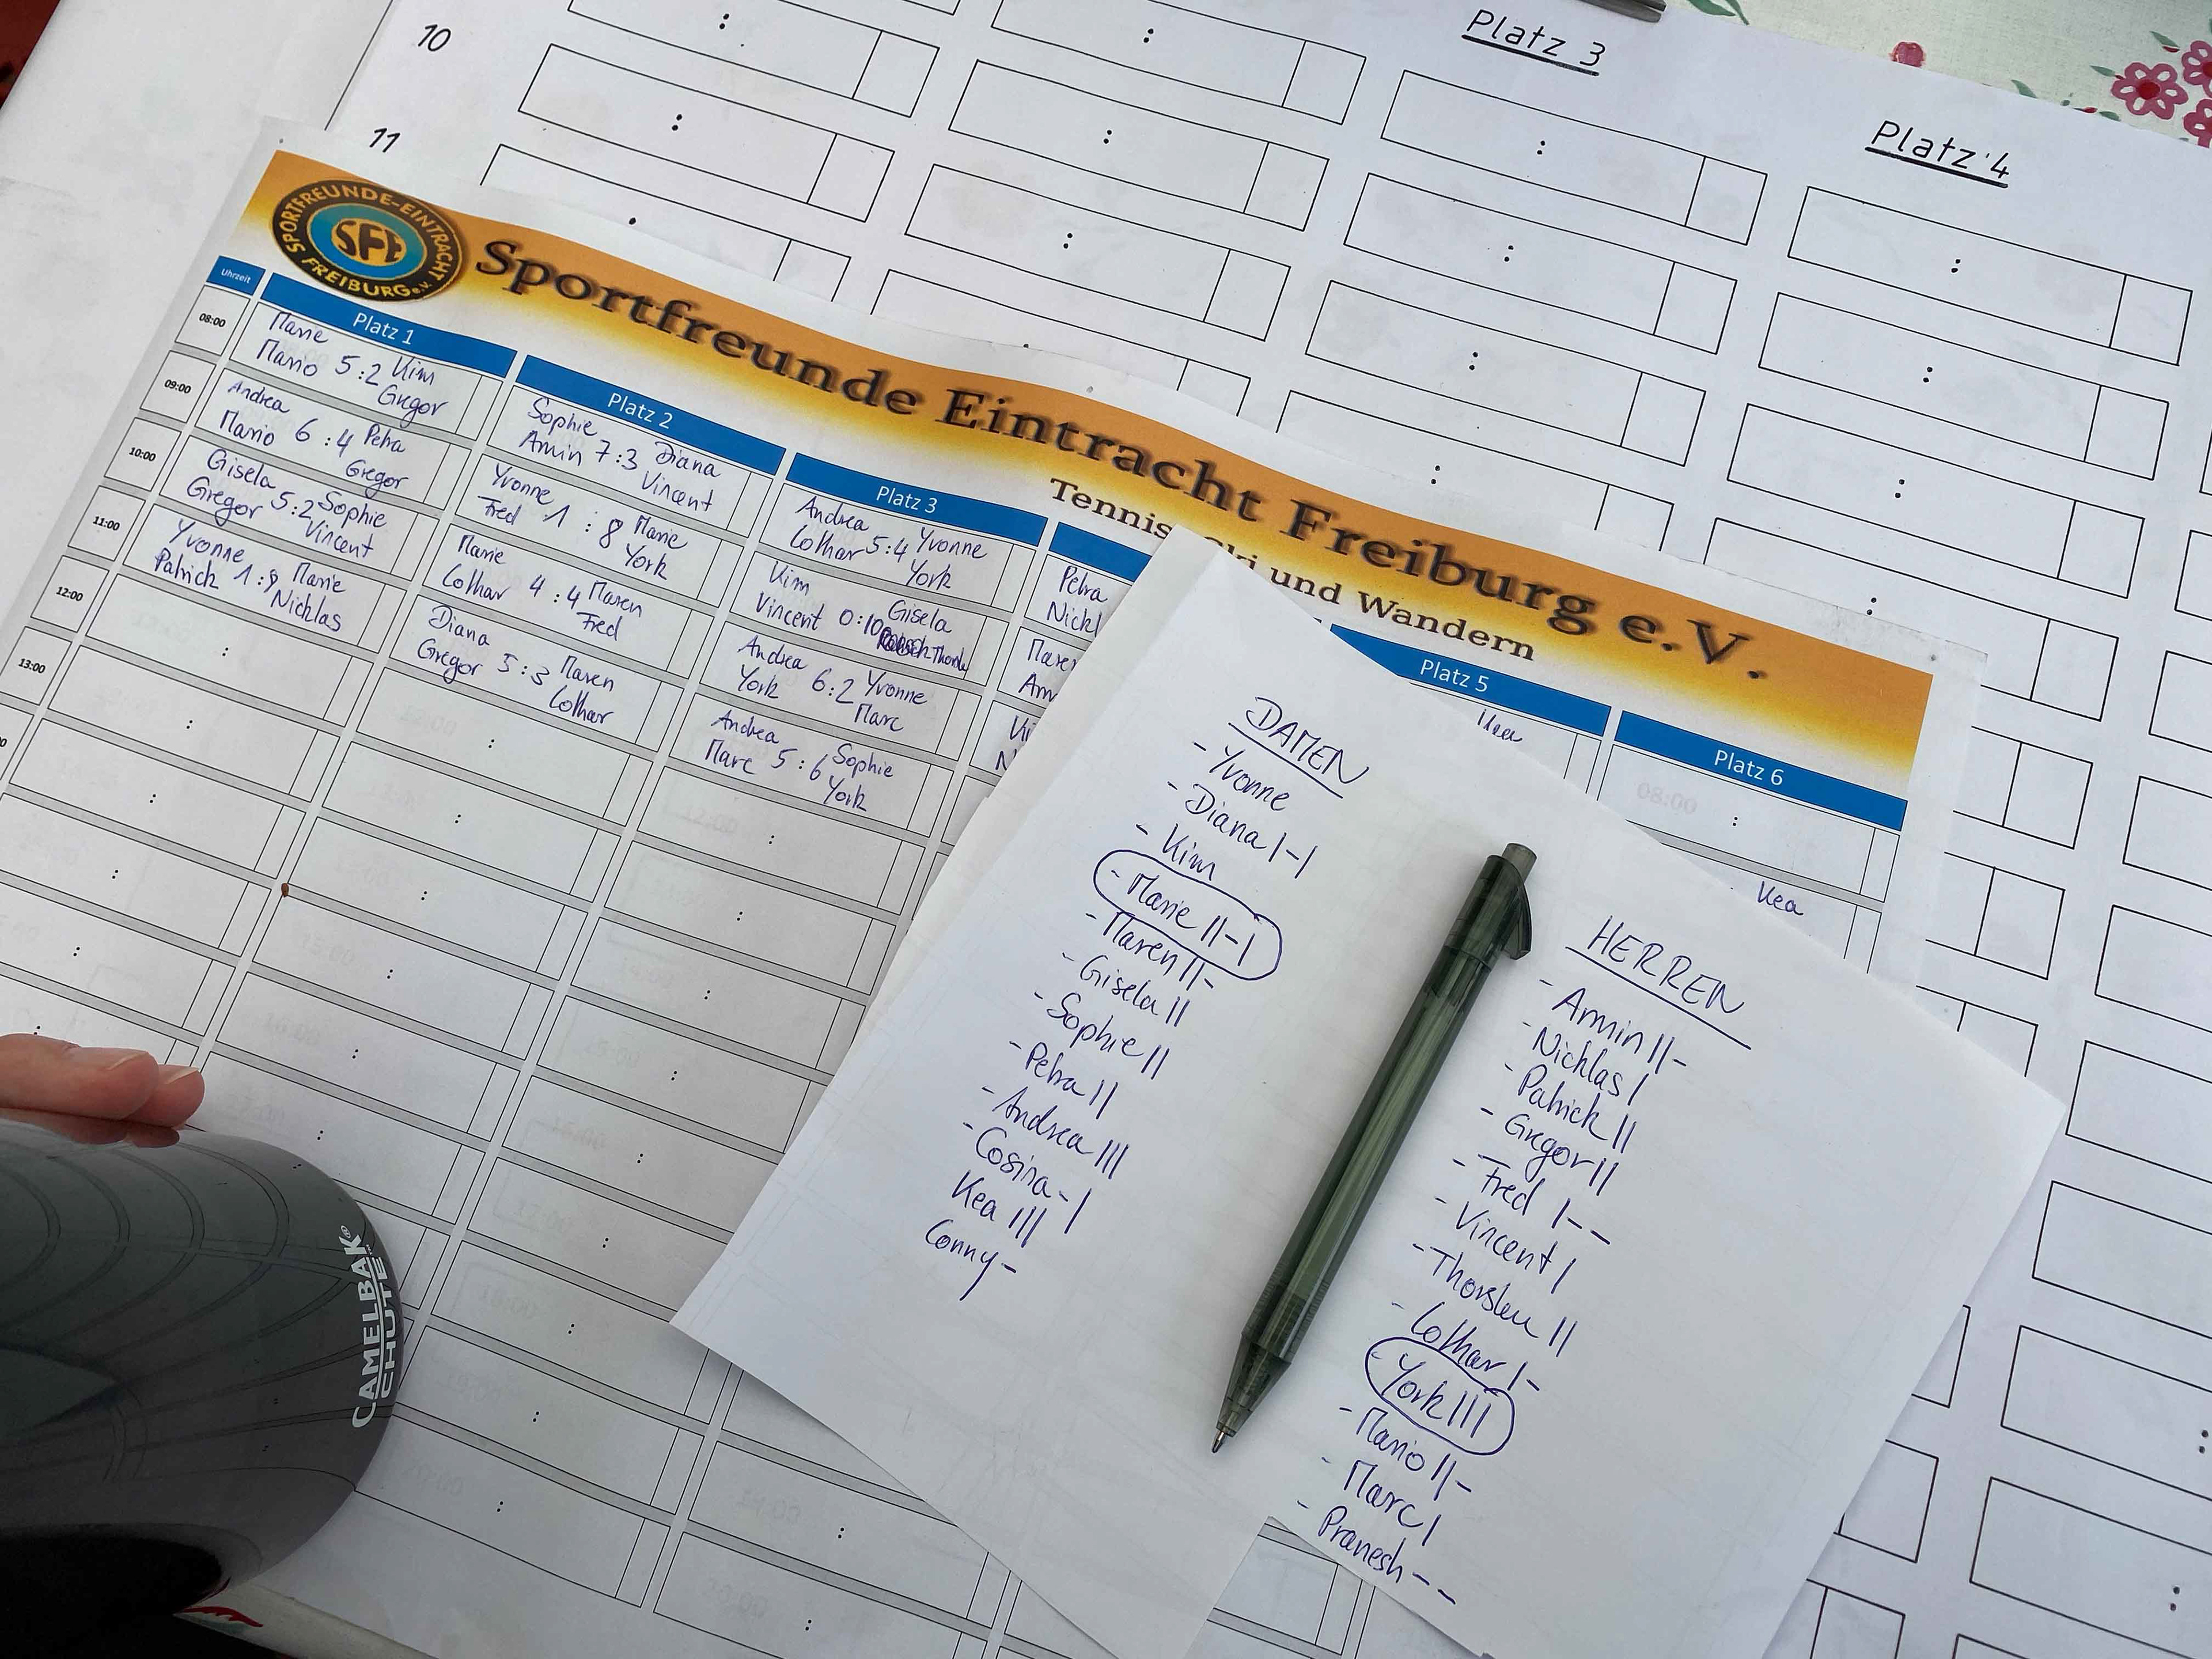 10
11
Platz 3
Platz 4
SPORTFREUNDE-EINTRACHT
SFE
FREIBURG e.V.
Sportfreunde Eintracht Freiburg e.V.
Tennis Ski und Wandern
Uhrzeit
Platz 1
Platz 2
Platz 3
Platz 5
Platz 6
08:00
Marie
Mario 5:2 Kim
Gregor
Sophie
Armin 7:3 Diana
Vincent
Andrea
Lothar 5:4 Yvonne
York
Petra
Nickl
Kea
09:00
Andrea
Mario 6:4 Petra
Gregor
Yvonne
Fred 1:8 Marie
York
Kim
Vincent 0:10 Gisela
Thorsten
Maren
Arm
Kea
10:00
Gisela
Gregor 5:2 Sophie
Vincent
Marie
Lothar 4:4 Maren
Fred
Andrea
York 6:2 Yvonne
Marc
Ki
N
11:00
Yvonne
Patrick 1:8 Marie
Nicklas
Diana
Gregor 5:3 Maren
Lothar
Andrea
Marc 5:6 Sophie
York
12:00
13:00
DAMEN
- Yvonne
- Diana I-I
- Kim
- Marie II-I
- Maren II-
- Gisela II
- Sophie II
- Petra II
- Andrea III
- Cosina - I
Kea III
Conny -
HERREN
- Armin II-
- Nicklas I
- Patrick II
- Gregor II
- Fred I--
- Vincent I
- Thorsten II
- Lothar I-
- York III
- Mario II-
- Marc I
- Pranesh --
CAMELBAK
CHUTE